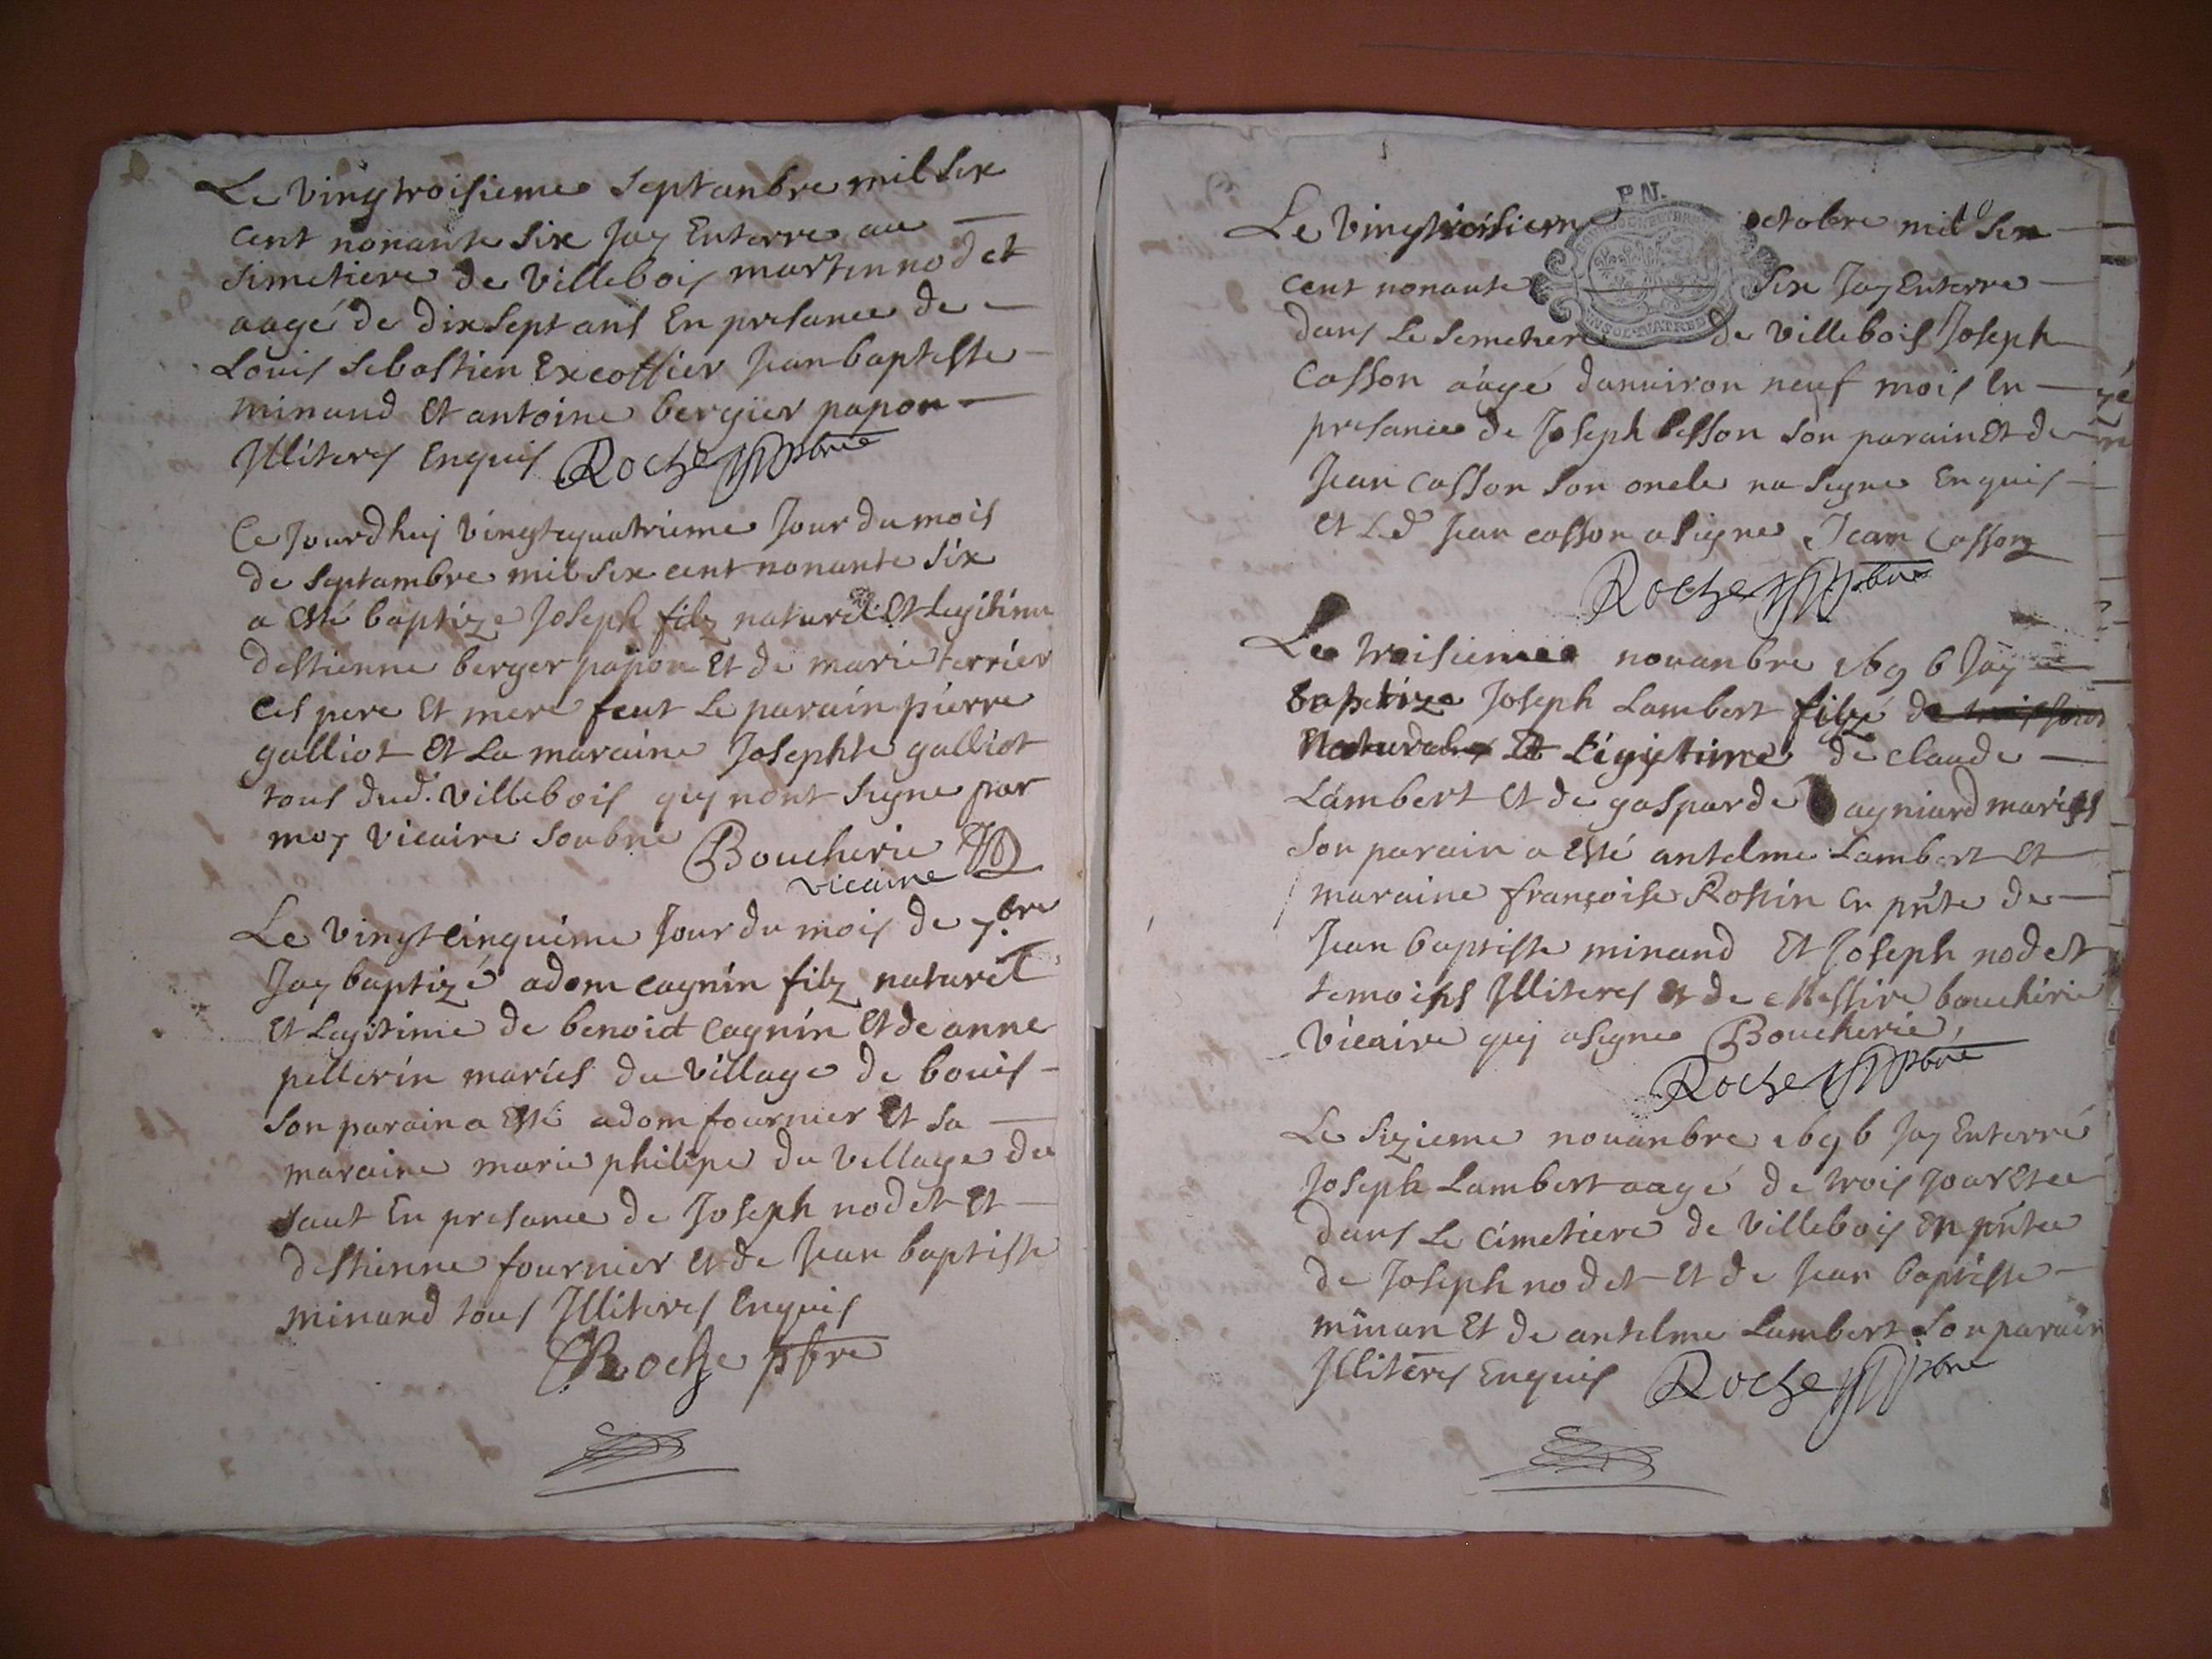 Le vingtroisieme septanbre mil six
cent nonante six Jay Enterre au
simetiere de villebois martin nodet
aagé de dix sept ans En presance de
Louis sebastien Excoffier Jean baptiste
minand Et antoine bergier papon
Illiteres Enquis Roche pbre
Ce Jourdhuy vingtquatrieme Jour du mois
de septambre mil six cent nonante six
a esté baptize Joseph filz naturel Et legitime
destienne berger papon Et de marie terrier
ces pere Et mere feut Le parain pierre
galliot Et La maraine Josephte galliot
tous dud. villebois quy nont signe par
moy vicaire soubne Boucherie
vicaire
Le vingt cinquieme Jour du mois de 7.bre
Jay baptizé adom cagnin filz naturel
Et Legitime de benoict cagnin Et de anne
pellerin mariés du village de bouis
son parain a esté adom fournier Et sa
maraine marie philipe du village du
saut En presance de Joseph nodet Et
destienne fournier Et de Jean baptiste
minand tous Illiteres Enquis
Roche pbre
P.N.
Le vingtroisiem octobre mil six
cent nonante six Jay Enterre
dans Le semetiere de villebois Joseph
Casson aagé danviron neuf mois En
presance de Joseph besson son parain Et de
Jean Casson son oncle na signe Enquis
Et Led Jean casson a signe Jean Casson
Roche pbre
Le troisieme novanbre 1696 Jay
baptize Joseph Lambert filz de
naturel Et Légitime de claude
Lambert Et de gasparde agniard mariés
son parain a esté antelme Lambert Et
maraine françoise Rossin En pnte de
Jean baptiste minand Et Joseph nodet
temoins Illiteres Et de Messire boucherie
vicaire quy a signe Boucherie,
Roche pbre
Le sizieme novanbre 1696 Jay Enterré
Joseph Lambert aagé de trois Jour
dans Le cimetiere de villebois En pnte
de Joseph nodet Et de Jean baptiste
minan Et de antelme Lambert son parain
Illiteres Enquis Roche pbre